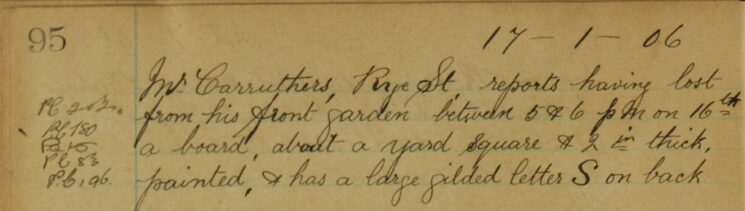 95
17 - 1 - 06
Mr. Carruthers, Rye St, reports having lost
from his front garden between 5 & 6 pm on 16th
a board, about a yard square & 2 in thick,
painted, & has a large gilded letter S on back
PC
PC 180
PC 83
P.C. 196.